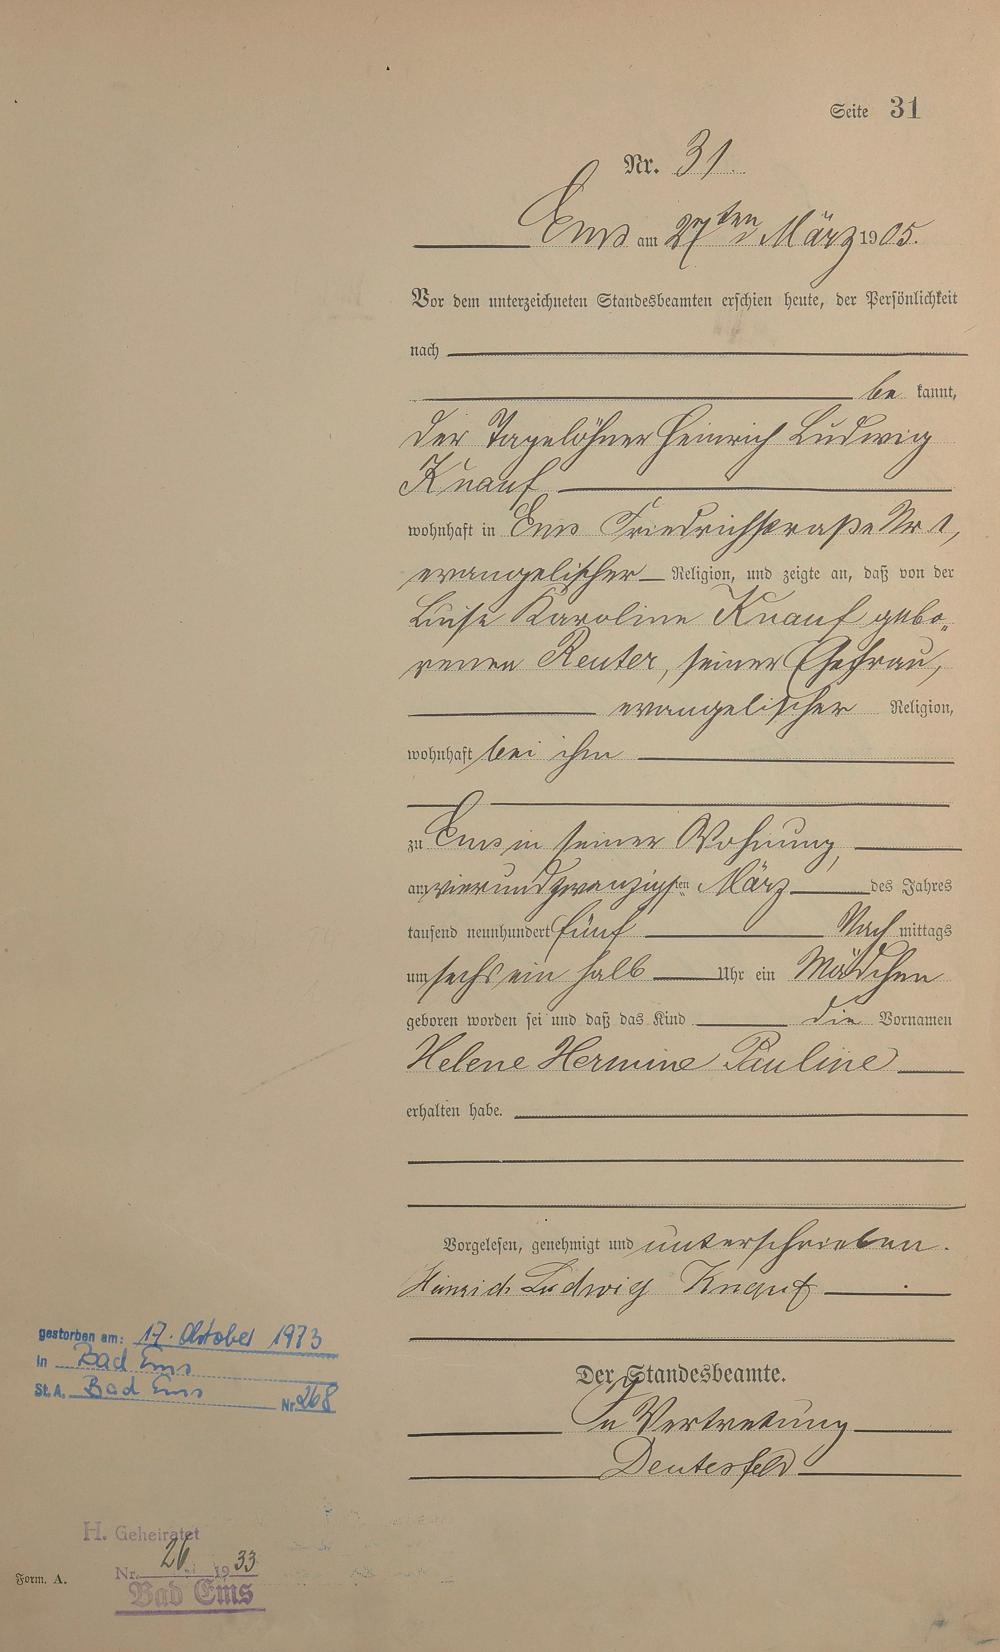 Seite 31
Nr. 31.
Ems am 27ten März 1905.
Vor dem unterzeichneten Standesbeamten erschien heute, der Persönlichkeit
nach
be kannt,
der Tagelöhner Heinrich Ludwig
Knauf
wohnhaft in Ems Friedrichstraße Nr 1,
evangelischer Religion, und zeigte an, daß von der
Luise Karoline Knauf gebo„
renen Reuter, seiner Ehefrau,
evangelischer Religion,
wohnhaft bei ihm
zu Ems in seiner Wohnung,
am vierundzwanzigsten März des Jahres
tausend neunhundert fünf Nach mittags
um sechs ein halb Uhr ein Mädchen
geboren worden sei und daß das Kind die Vornamen
Helene Hermine Pauline
erhalten habe.
Vorgelesen, genehmigt und unterschrieben.
Heinrich Ludwig Knauf
Der Standesbeamte.
In Vertretung
Deutesfeld
gestorben am: 17. Oktober 1973
in Bad Ems
St. A. Bad Ems Nr. 268
H. Geheiratet
Nr. 26 1933
Bad Ems
Form. A.